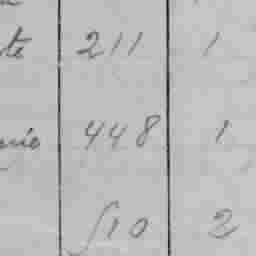 te 211 1
448 1
510 2